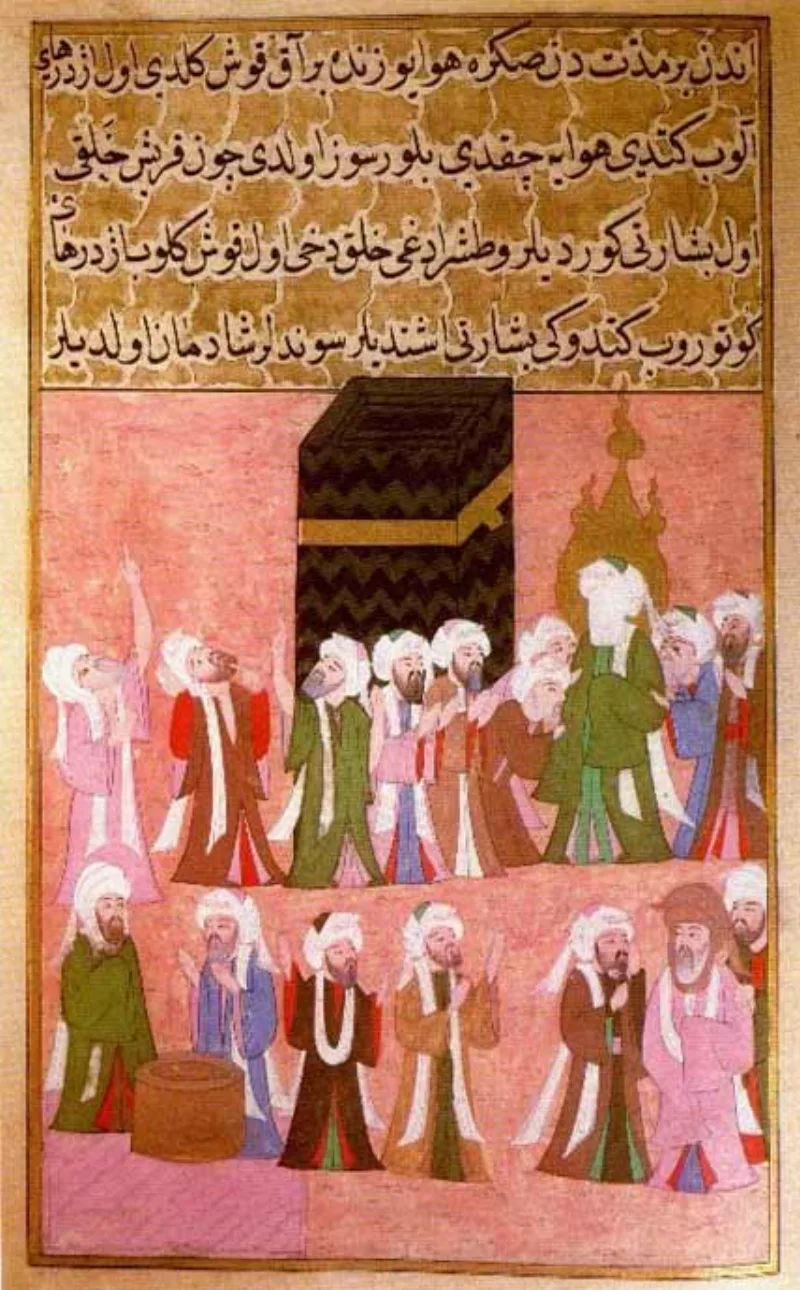 اندن بر مدت دن صکره هوا یوزنده بر آق قوش کلدی اول اژدرهای
آلوب کتدی هوایه چقدی بلورسوز اولدی چون قریش خلقی
اول بشارتی کوردیلر و طشرادغی خلق دخی اول قوش کلوب اژدرهای
کوتوروب کتدوکی بشارتی اشتدیلر سوندلر شادمان اولدیلر